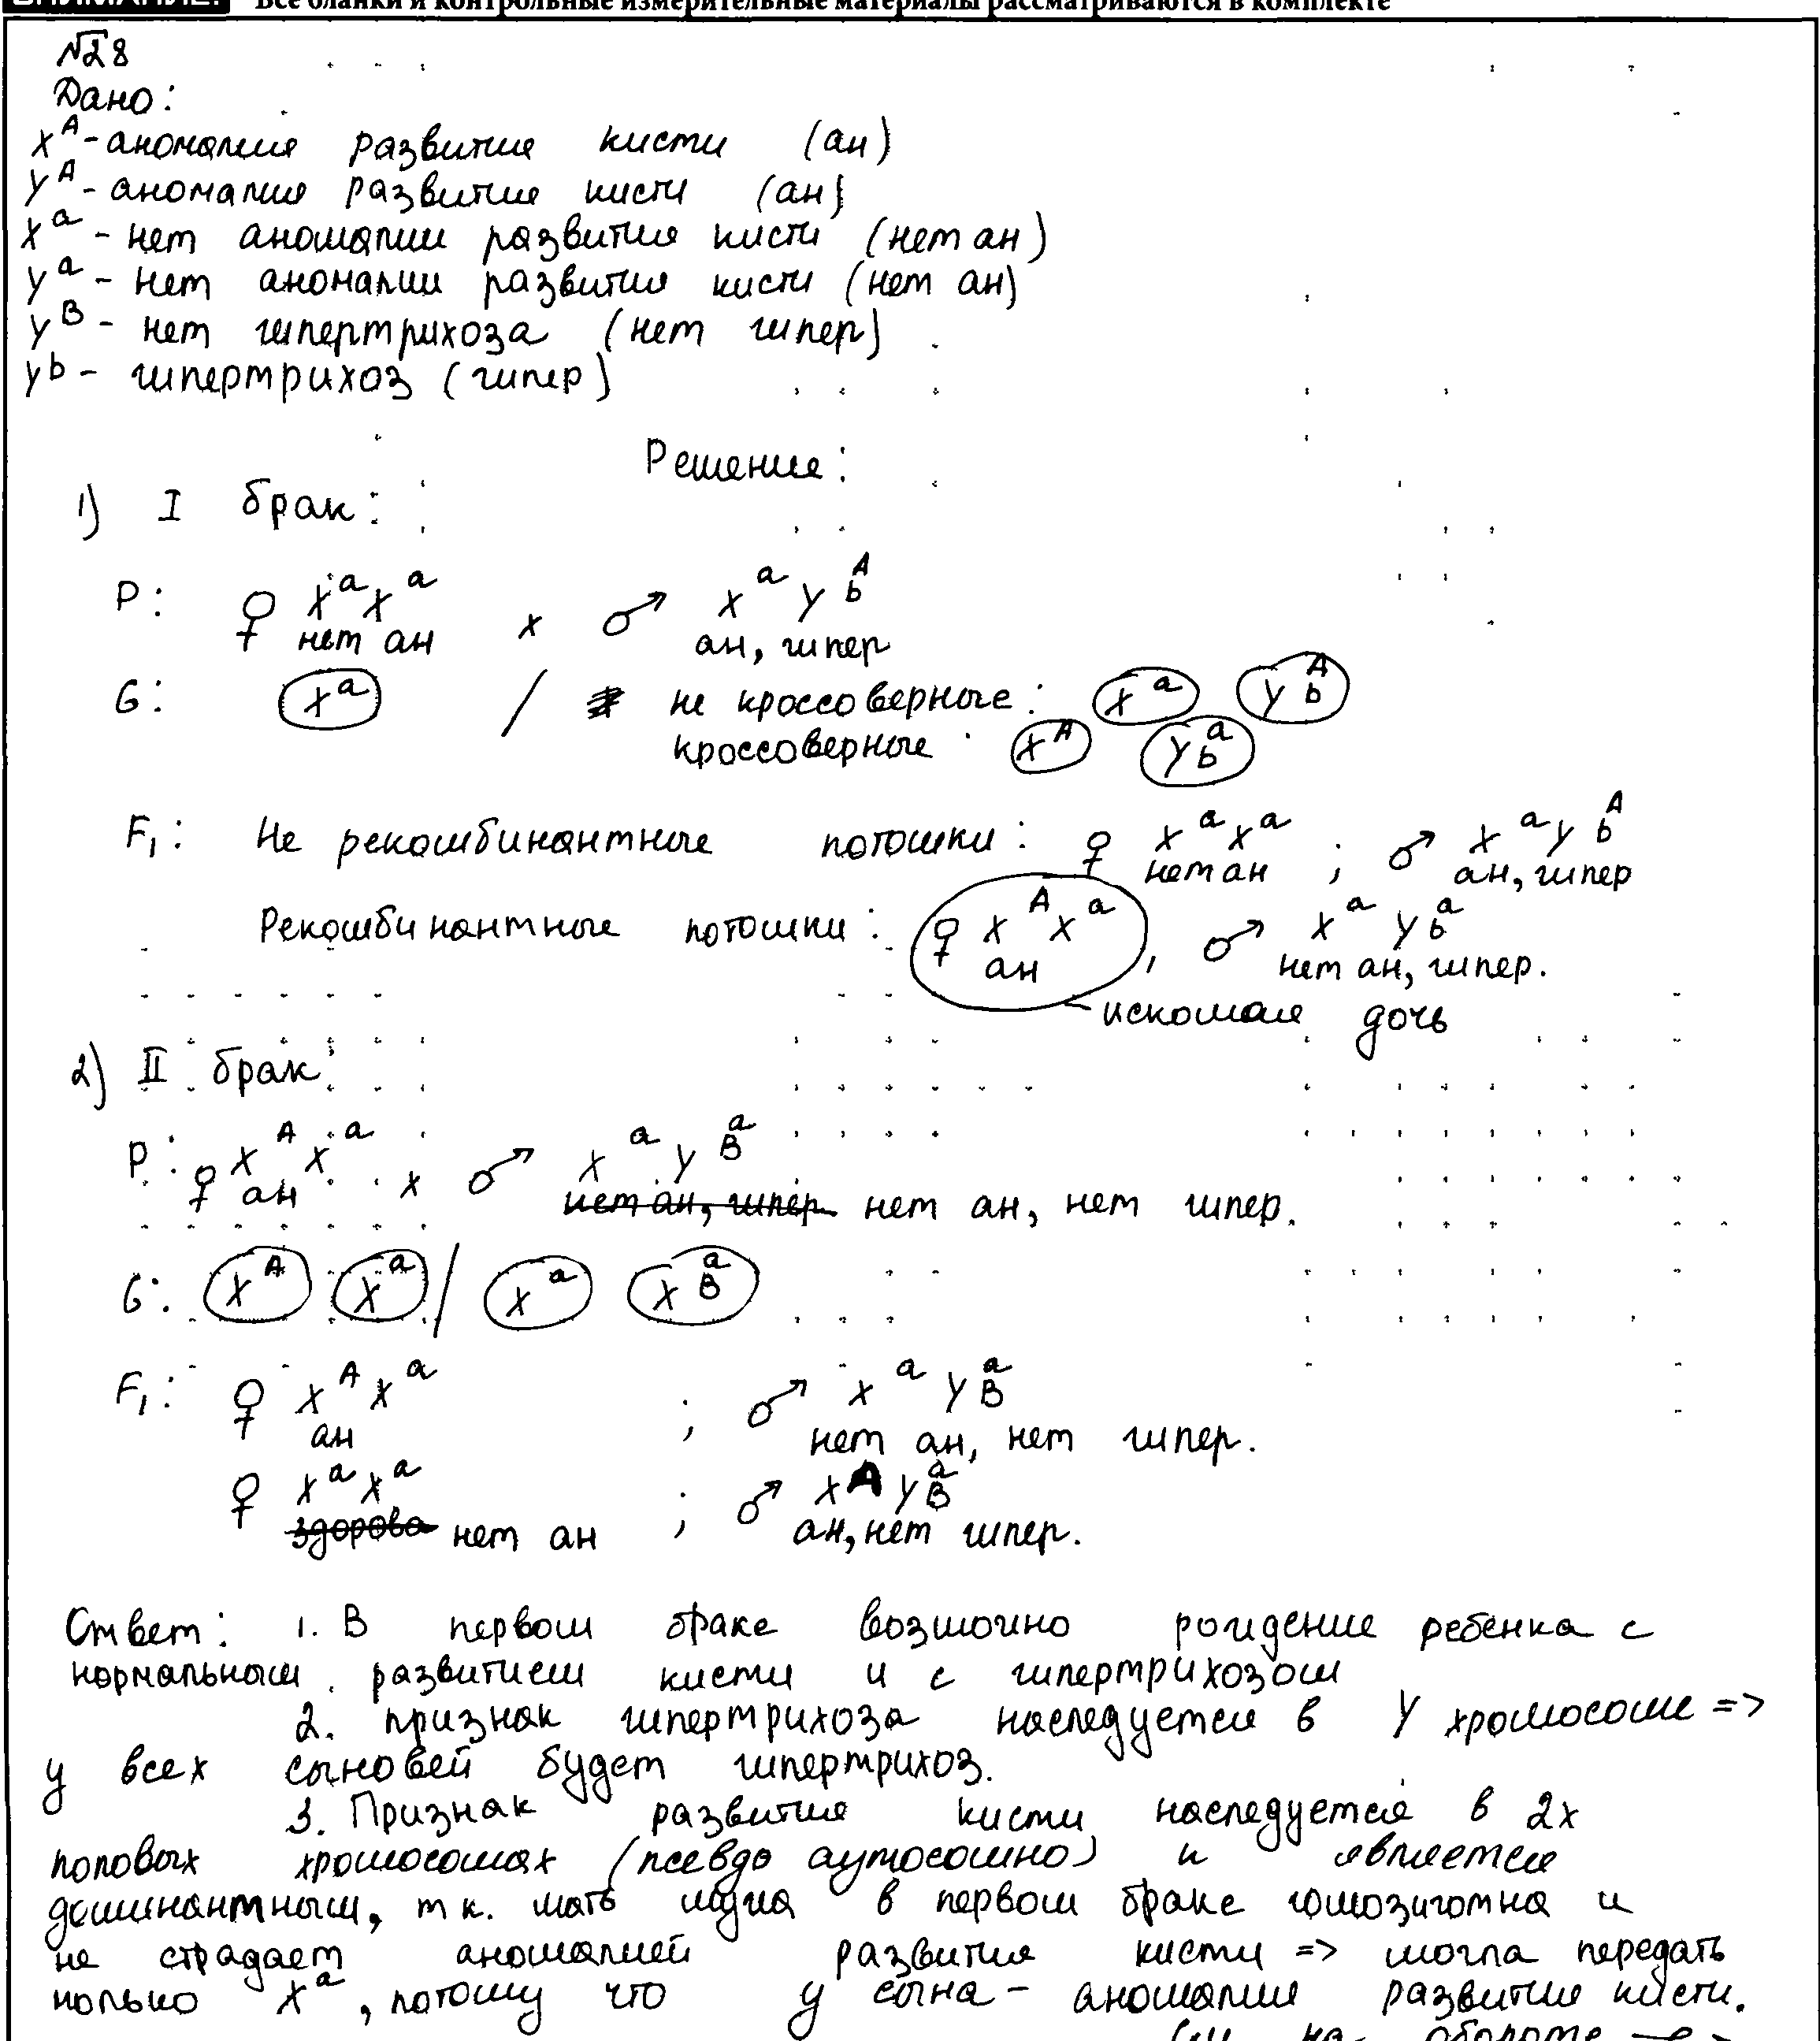 ВНИМАНИЕ! Все бланки и контрольные измерительные материалы рассматриваются в комплекте
№28
Дано:
X^A - аномалия развития кисти (ан)
Y^A - аномалия развития кисти (ан)
X^a - нет аномалии развития кисти (нет ан)
Y^a - нет аномалии развития кисти (нет ан)
Y^B - нет гипертрихоза (нет гипер)
Y^b - гипертрихоз (гипер)
Решение:
1) I брак:
P: ♀ X^a X^a x ♂ X^a Y b^A
нет ан ан, гипер
G: X^a / не кроссоверные: X^a Y b^A
кроссоверные: X^A Y b^a
F₁: Не рекомбинантные потомки: ♀ X^a X^a ; ♂ X^a Y b^A
нет ан ан, гипер
Рекомбинантные потомки: ♀ X^A X^a , ♂ X^a Y b^a
ан нет ан, гипер.
- искомая дочь
2) II брак:
P: ♀ X^A X^a x ♂ X^a Y B^a
ан нет ан, гипер нет ан, нет гипер.
G: X^A X^a / X^a X B^a
F₁: ♀ X^A X^a ; ♂ X^a Y B^a
ан нет ан, нет гипер.
♀ X^a X^a ; ♂ X^A Y B^a
здорова нет ан ; ан, нет гипер.
Ответ: 1. В первом браке возможно рождение ребенка с
нормальным развитием кисти и с гипертрихозом
2. признак гипертрихоза наследуется в Y хромосоме =>
у всех сыновей будет гипертрихоз.
3. Признак развития кисти наследуется в 2х
половых хромосомах (псевдо аутосомно) и является
доминантным, т к. мать мужа в первом браке гомозиготна и
не страдает аномалией развития кисти => могла передать
только X^a, потому что у сына - аномалия развития кисти.
См на обороте